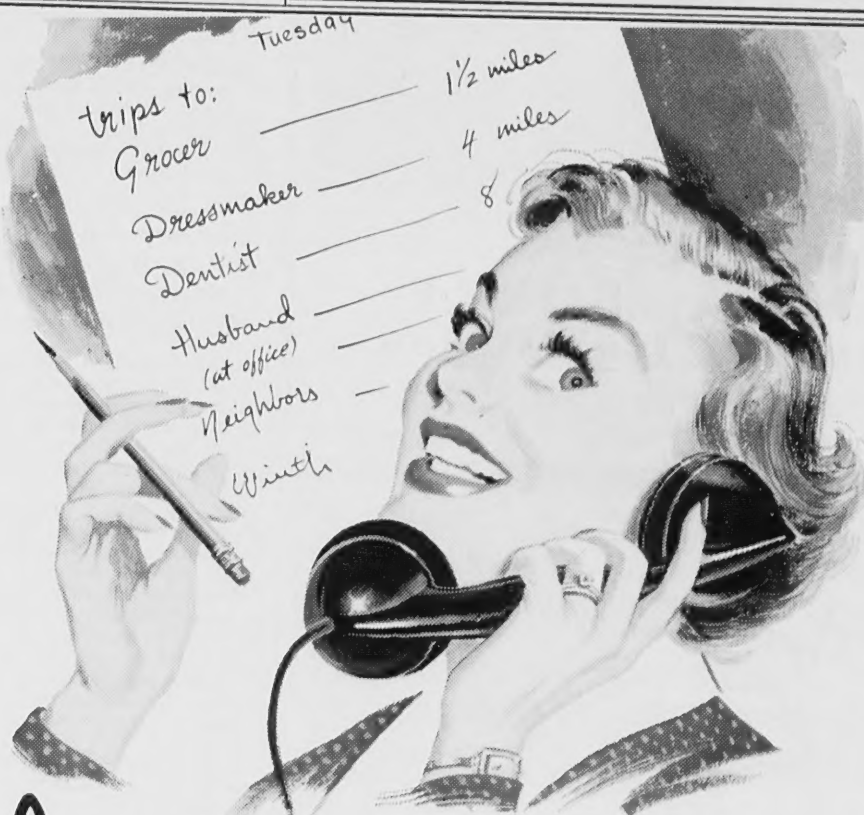 Tuesday
trips to:
Grocer 1½ miles
Dressmaker 4 miles
Dentist 8
Husband
(at office)
Neighbors